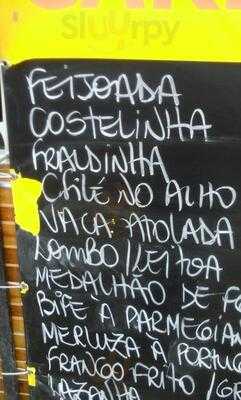 CAR
Sluurpy
FEIJOADA
COSTELINHA
FRALDINHA
FILÉ NO ALHO
VACA ATOLADA
LOMBO/LEITOA
MEDALHÃO DE FG
BIFE À PARMEGIAN
MERLUZA À PORTUG
FRANGO FRITO /GR
LAZANHA